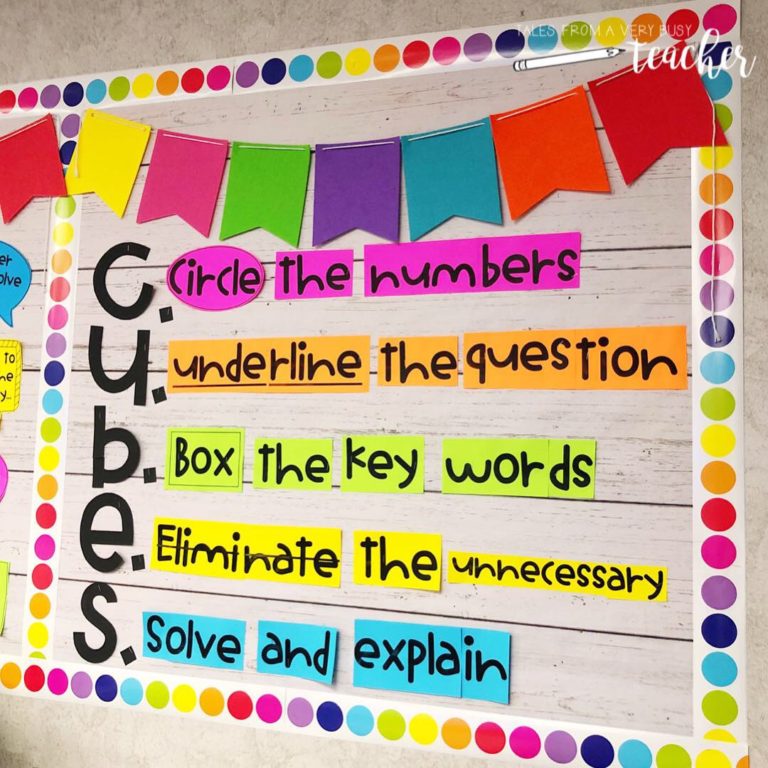 TALES FROM A VERY BUSY
teacher
c. Circle the numbers
u. underline the question
b. Box the key words
e. Eliminate the unnecessary
s. Solve and explain
er
olve
to
he
y...